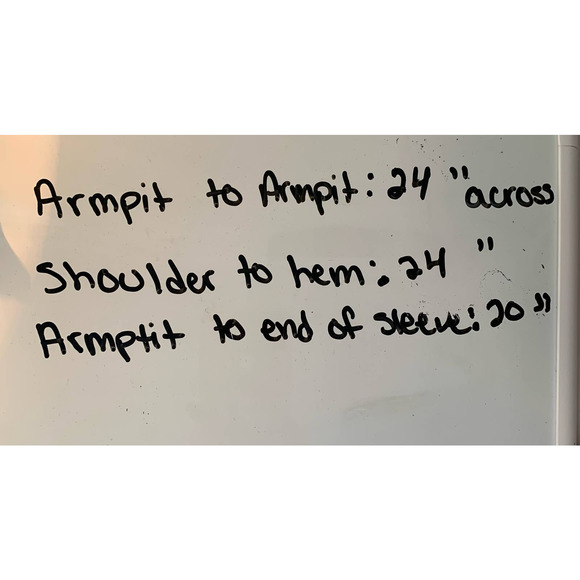 Armpit to Armpit: 24 "across
Shoulder to hem: 24 "
Armptit to end of sleeve: 20 "